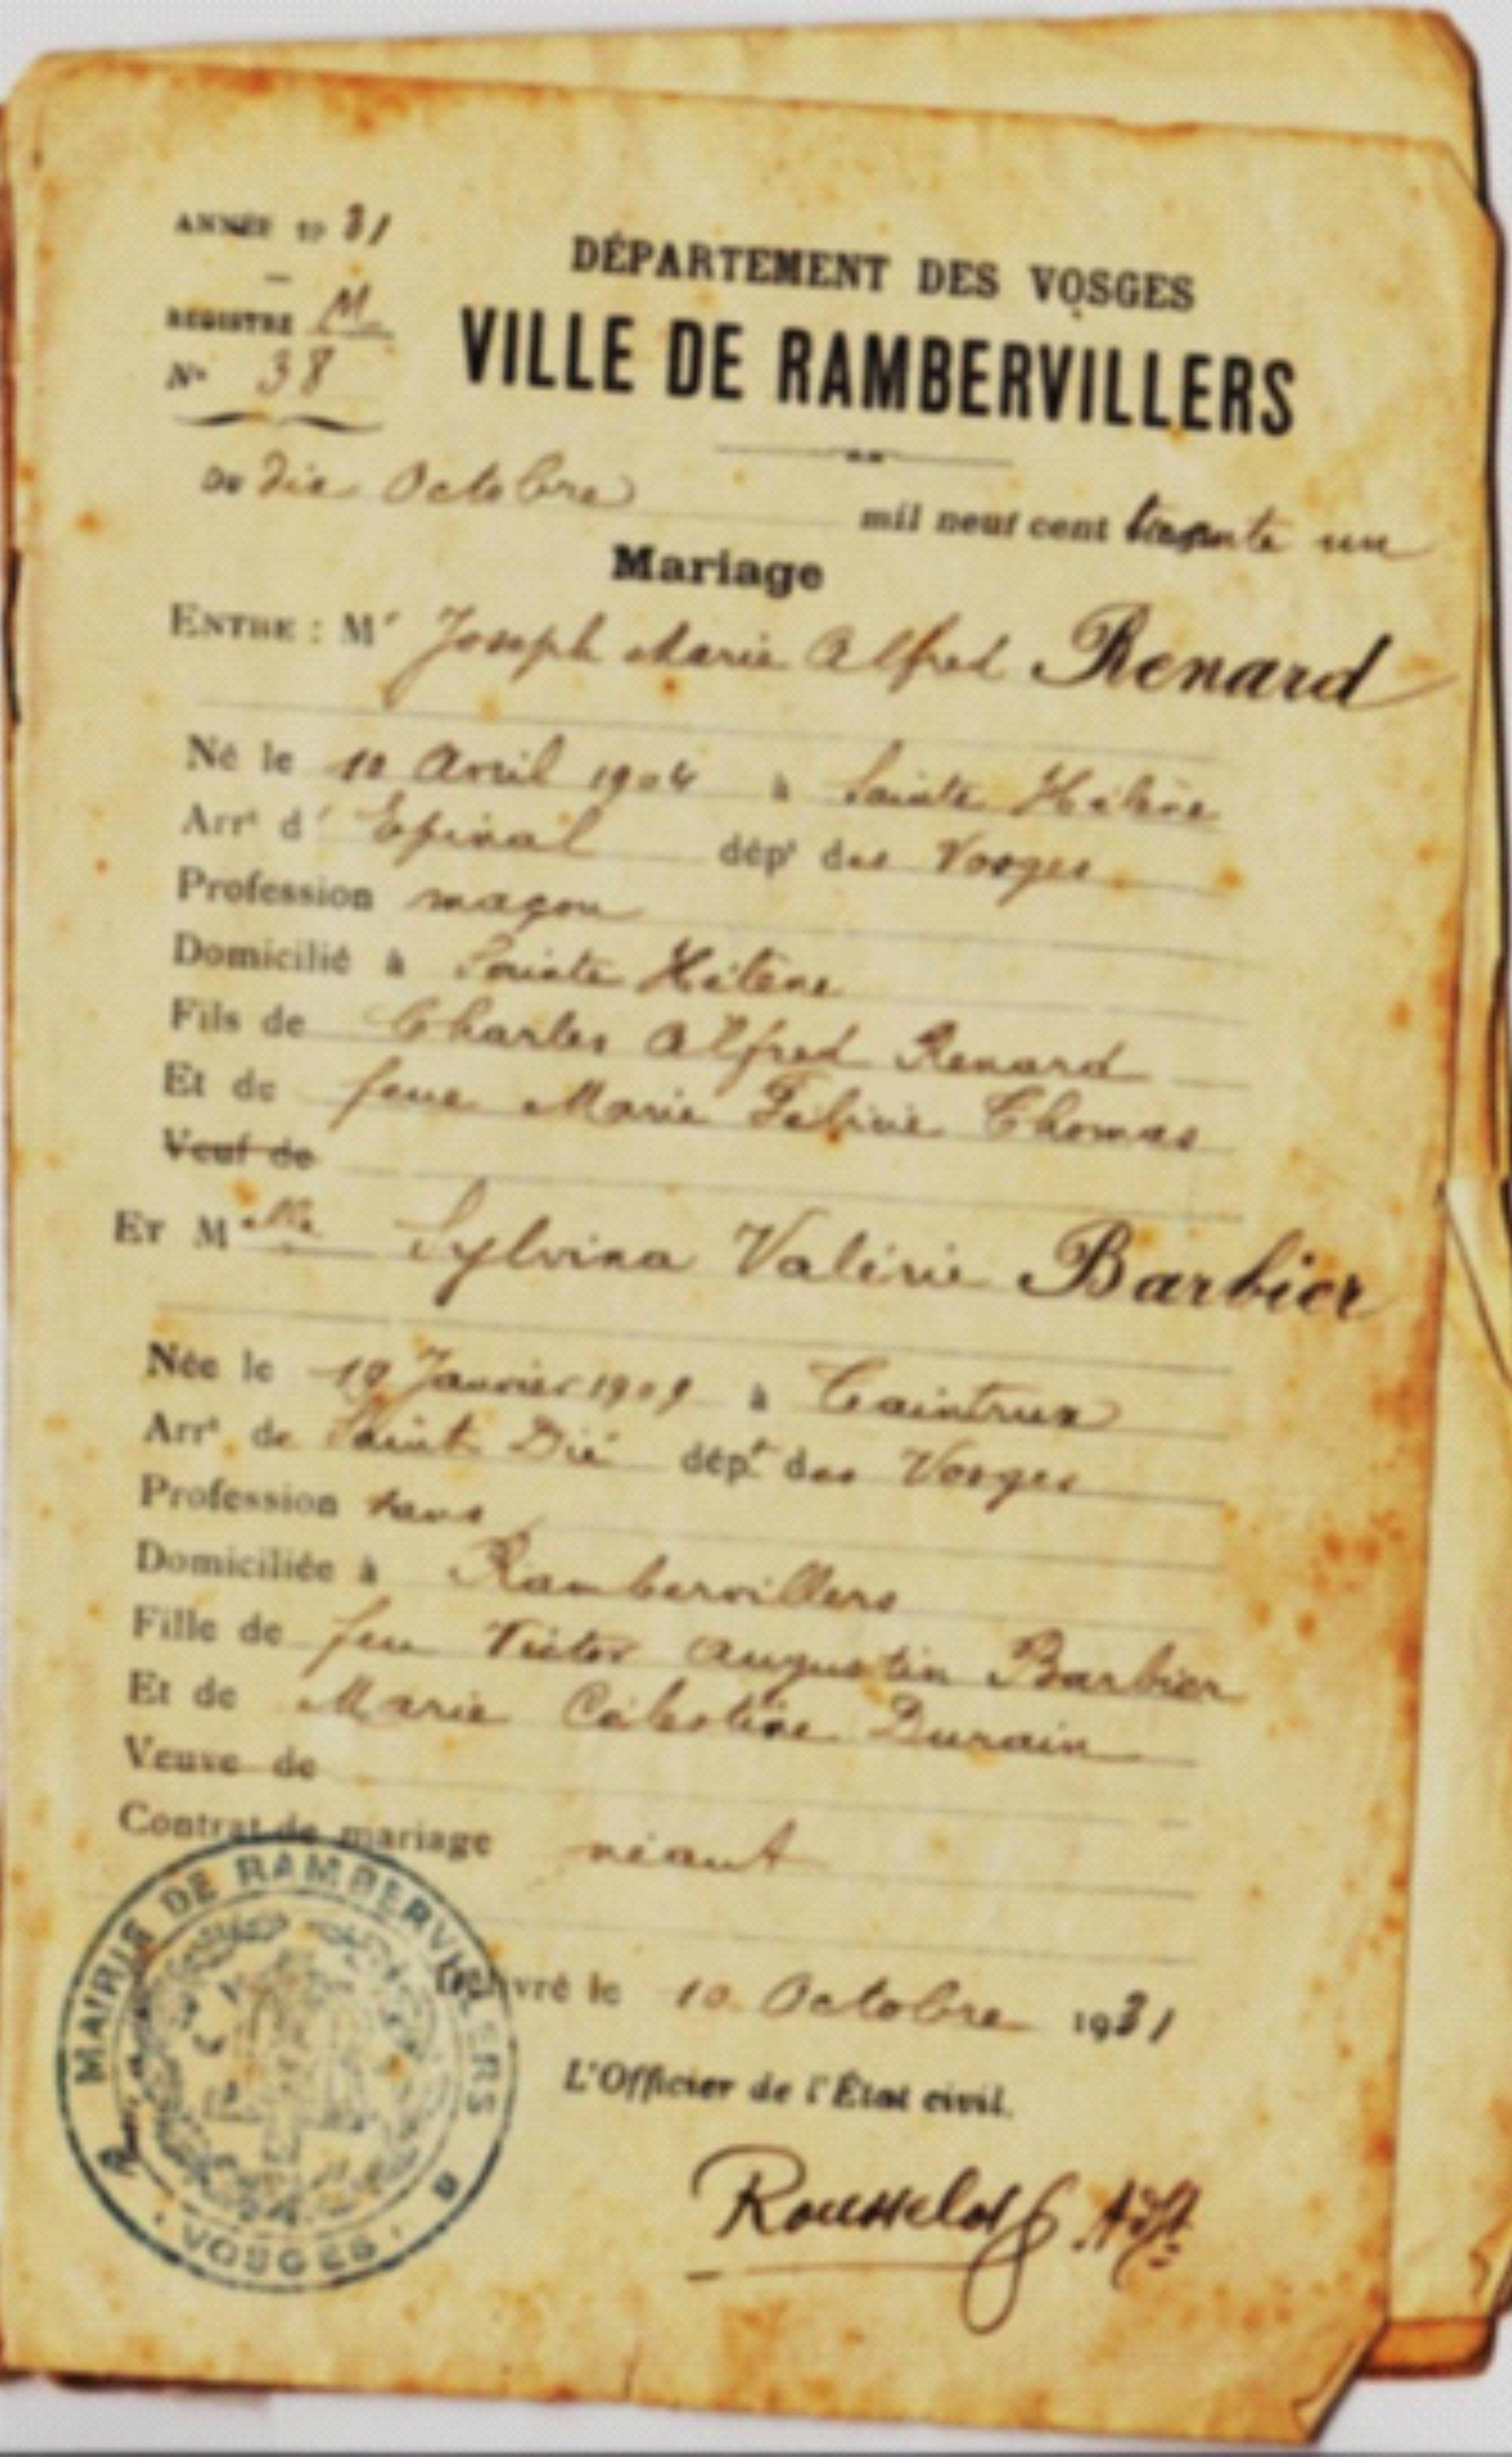 ANNÉE 19 31
DÉPARTEMENT DES VOSGES
REGISTRE M
VILLE DE RAMBERVILLERS
N° 38
DU dix Octobre mil neuf cent trente un
Mariage
ENTRE : Mr Joseph Marie Alfred Renard
Né le 10 Avril 1904 à Sainte Hélène
Arrt d' Epinal dépt des Vosges
Profession maçon
Domicilié à Sainte Hélène
Fils de Charles Alfred Renard
Et de feue Marie Félicie Thomas
Veuf de
ET Melle Sylvina Valérie Barbier
Née le 19 Janvier 1909 à Taintrux
Arrt de Saint Dié dépt des Vosges
Profession sans
Domiciliée à Rambervillers
Fille de feu Victor Augustin Barbier
Et de Marie Célestine Durain
Veuve de
Contrat de mariage néant
MAIRIE DE RAMBERVILLERS
VOSGES
Délivré le 10 Octobre 1931
L'Officier de l'État civil.
Rousselot Adjt